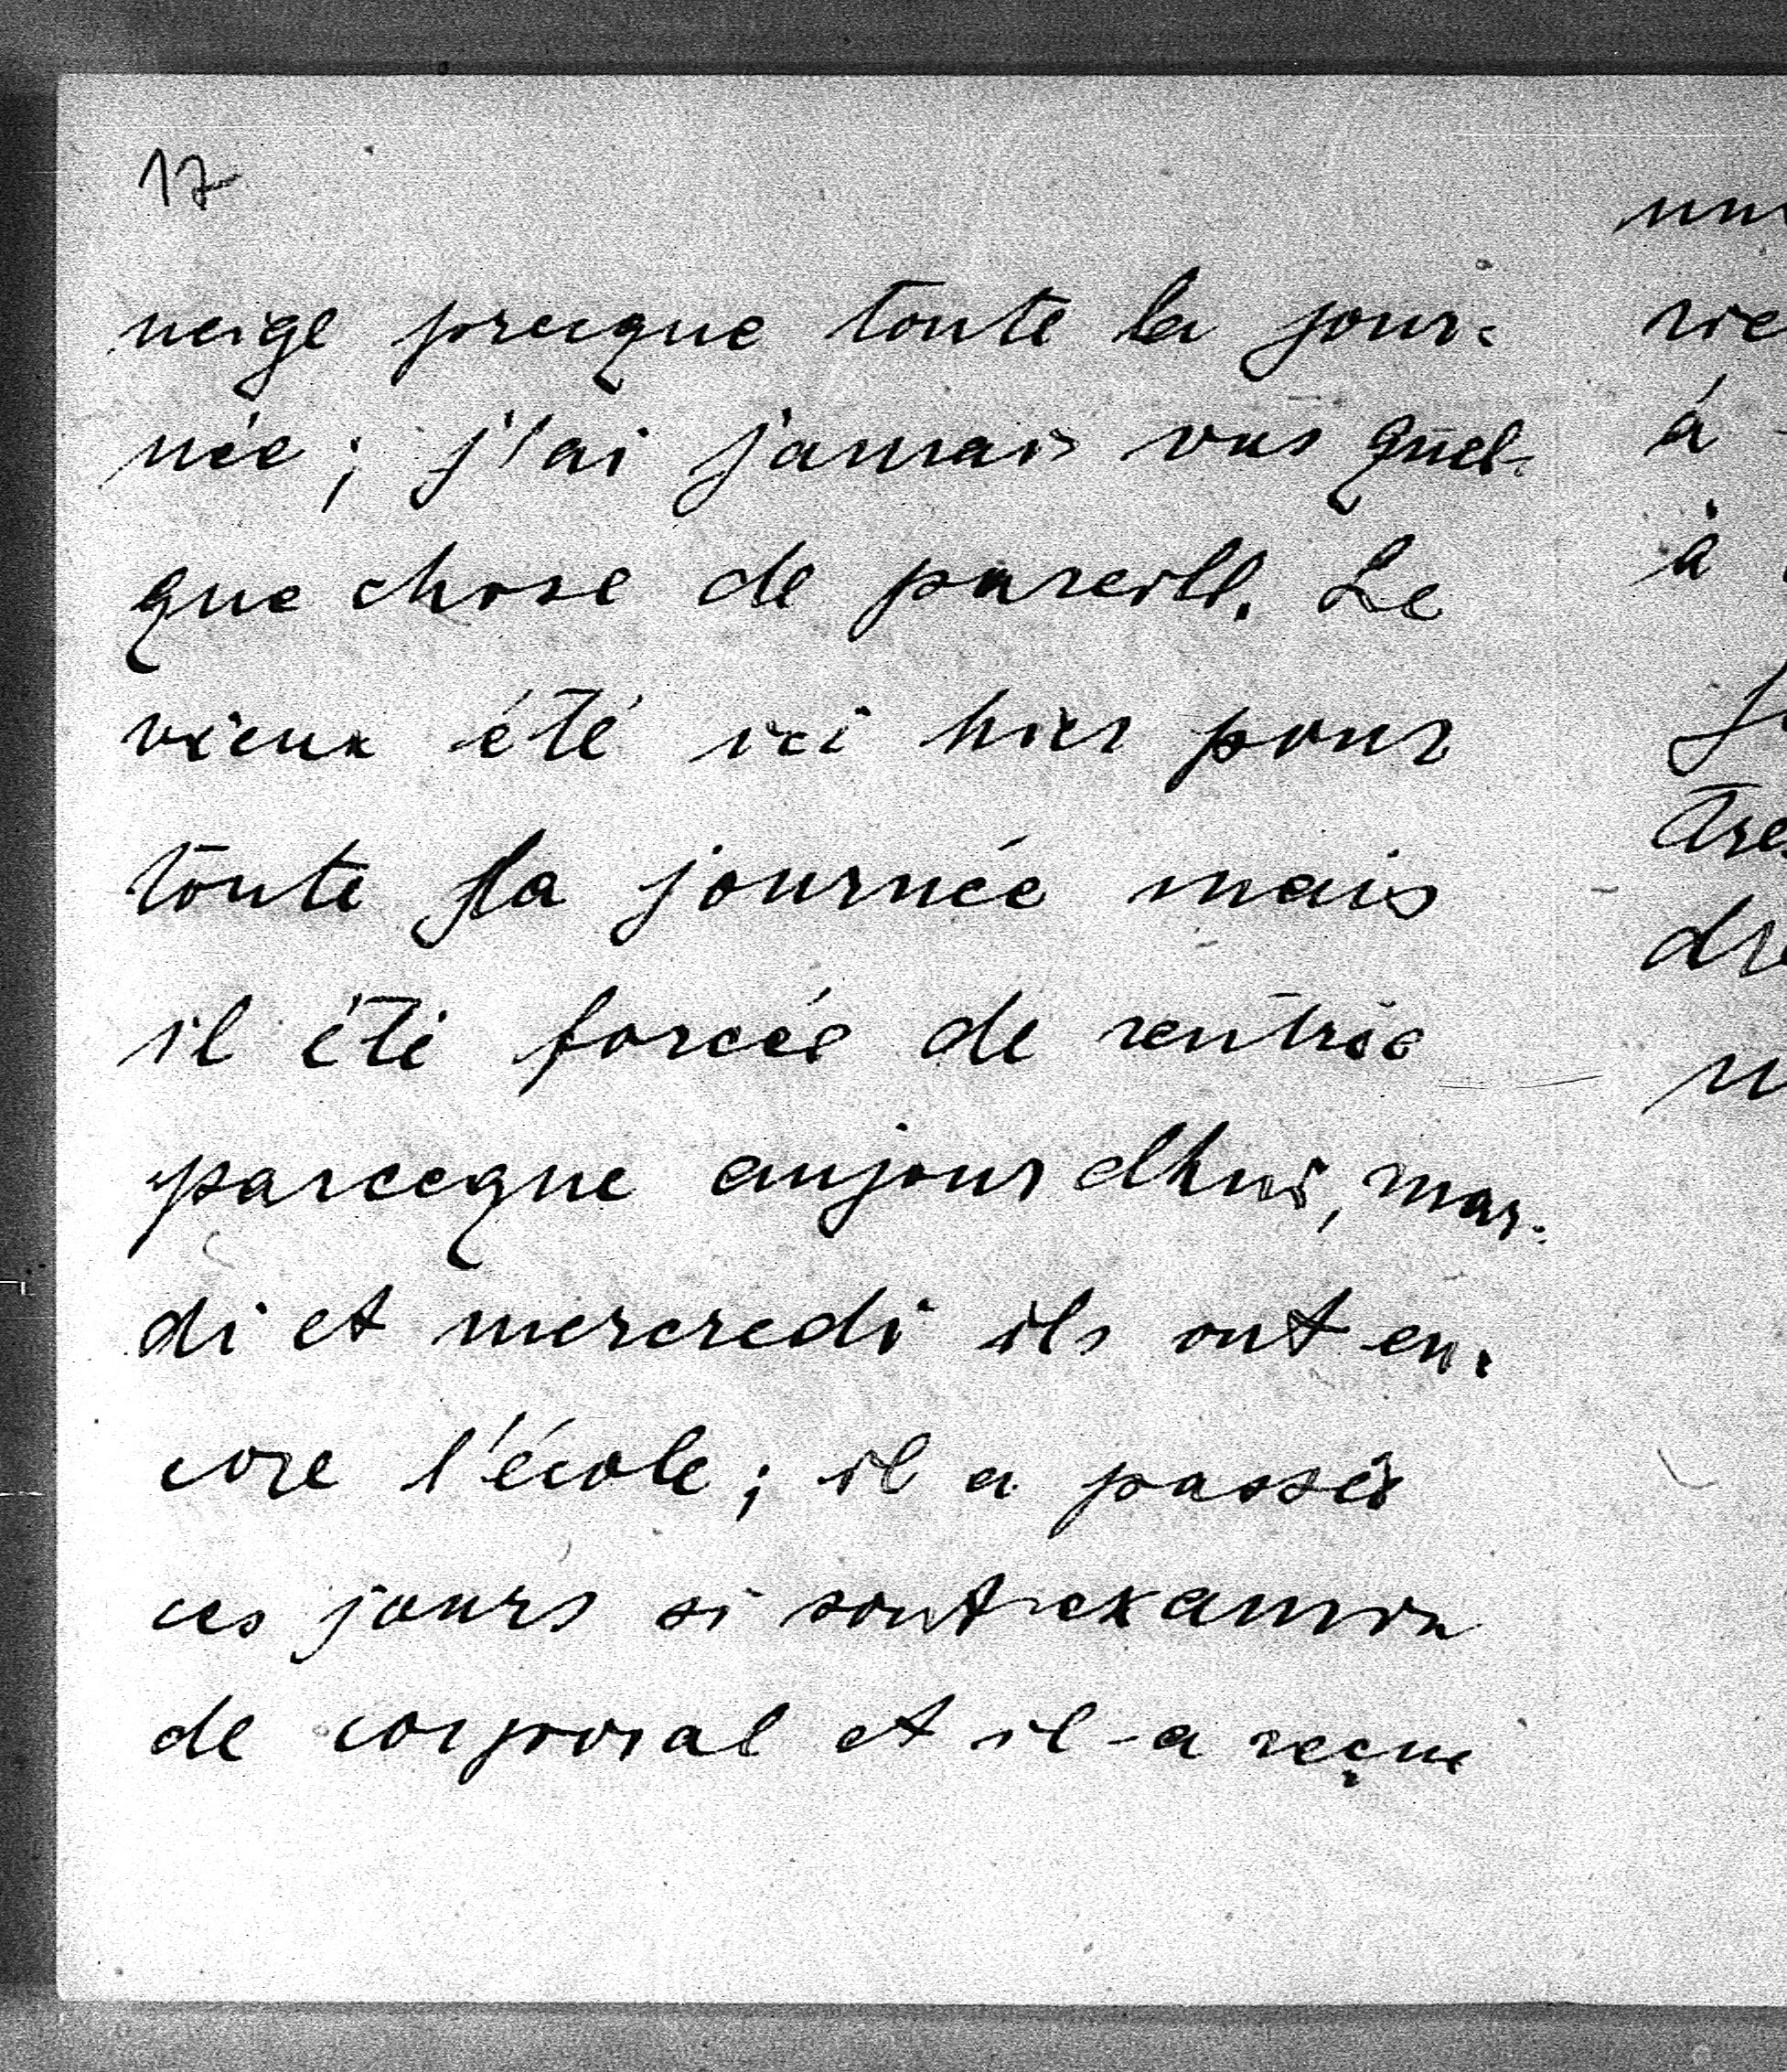 17
neige precque toute la jour-
née; j'ai jamais vus quel-
que chose de pareill. Le
vieux été ici hier pour
toute la journée mais
il été forcée de rentrée
parceque aujourdhui, mar-
di et mercredi ils ont en-
core l'école; il a passés
ces jours si sont examin
de corporal et il a reçue